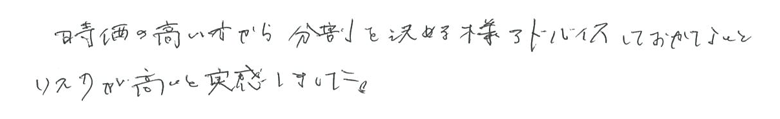 時価の高い方から分割を決める様アドバイスしておかないと
リスクが高いと実感しました。